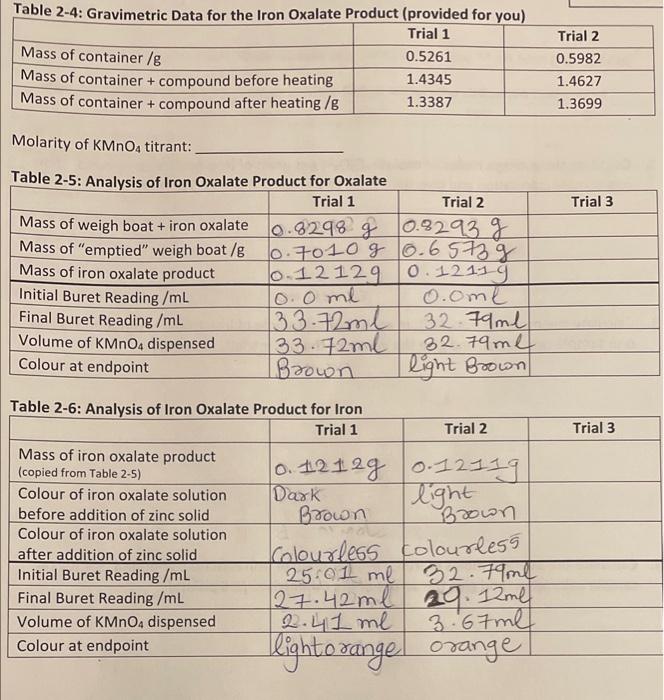 Table 2-4: Gravimetric Data for the Iron Oxalate Product (provided for you)
Trial 1 Trial 2
Mass of container /g 0.5261 0.5982
Mass of container + compound before heating 1.4345 1.4627
Mass of container + compound after heating /g 1.3387 1.3699
Molarity of KMnO₄ titrant:
Table 2-5: Analysis of Iron Oxalate Product for Oxalate
Trial 1 Trial 2 Trial 3
Mass of weigh boat + iron oxalate 0.8298 g 0.8293 g
Mass of "emptied" weigh boat /g 0.7010 g 0.6573g
Mass of iron oxalate product 0.1212g 0.1211g
Initial Buret Reading /mL 0.0 ml 0.0ml
Final Buret Reading /mL 33.72ml 32.79ml
Volume of KMnO₄ dispensed 33.72ml 32.79ml
Colour at endpoint Brown light Brown
Table 2-6: Analysis of Iron Oxalate Product for Iron
Trial 1 Trial 2 Trial 3
Mass of iron oxalate product
(copied from Table 2-5) 0.1212g 0.1211g
Colour of iron oxalate solution Dark light
before addition of zinc solid Brown Brown
Colour of iron oxalate solution
after addition of zinc solid Colourless colourless
Initial Buret Reading /mL 25.01 ml 32.79ml
Final Buret Reading /mL 27.42ml 29.12ml
Volume of KMnO₄ dispensed 2.41 ml 3.67ml
Colour at endpoint light orange orange